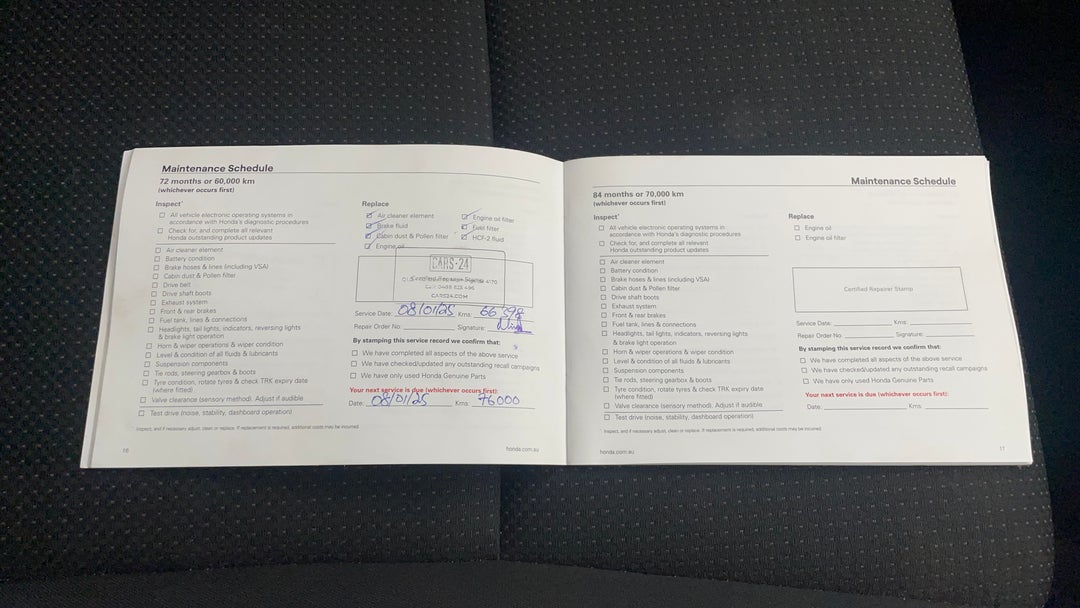 Maintenance Schedule
72 months or 60,000 km
(whichever occurs first)
Inspect*
All vehicle electronic operating systems in
accordance with Honda's diagnostic procedures
Check for, and complete all relevant
Honda outstanding product updates
Air cleaner element
Battery condition
Brake hoses & lines (including VSA)
Cabin dust & Pollen filter
Drive belt
Drive shaft boots
Exhaust system
Front & rear brakes
Fuel tank, lines & connections
Headlights, tail lights, indicators, reversing lights
& brake light operation
Horn & wiper operations & wiper condition
Level & condition of all fluids & lubricants
Suspension components
Tie rods, steering gearbox & boots
Tyre condition, rotate tyres & check TRK expiry date
(where fitted)
Valve clearance (sensory method). Adjust if audible
Test drive (noise, stability, dashboard operation)
*Inspect, and if necessary adjust, clean or replace. If replacement is required, additional costs may be incurred.
16
Replace
Air cleaner element
Brake fluid
Cabin dust & Pollen filter
Engine oil
Engine oil filter
Fuel filter
HCF-2 fluid
CARS-24
4170
CARS24.COM
Service Date: 08/01/25 Kms: 66398
Repair Order No: Signature:
By stamping this service record we confirm that:
We have completed all aspects of the above service
We have checked/updated any outstanding recall campaigns
We have only used Honda Genuine Parts
Your next service is due (whichever occurs first):
Date: 08/01/25 Kms: 76000
honda.com.au
Maintenance Schedule
84 months or 70,000 km
(whichever occurs first)
Inspect*
All vehicle electronic operating systems in
accordance with Honda's diagnostic procedures
Check for, and complete all relevant
Honda outstanding product updates
Air cleaner element
Battery condition
Brake hoses & lines (including VSA)
Cabin dust & Pollen filter
Drive belt
Drive shaft boots
Exhaust system
Front & rear brakes
Fuel tank, lines & connections
Headlights, tail lights, indicators, reversing lights
& brake light operation
Horn & wiper operations & wiper condition
Level & condition of all fluids & lubricants
Suspension components
Tie rods, steering gearbox & boots
Tyre condition, rotate tyres & check TRK expiry date
(where fitted)
Valve clearance (sensory method). Adjust if audible
Test drive (noise, stability, dashboard operation)
*Inspect, and if necessary adjust, clean or replace. If replacement is required, additional costs may be incurred.
honda.com.au
Replace
Engine oil
Engine oil filter
Certified Repairer Stamp
Service Date: Kms:
Repair Order No: Signature:
By stamping this service record we confirm that:
We have completed all aspects of the above service
We have checked/updated any outstanding recall campaigns
We have only used Honda Genuine Parts
Your next service is due (whichever occurs first):
Date: Kms:
17